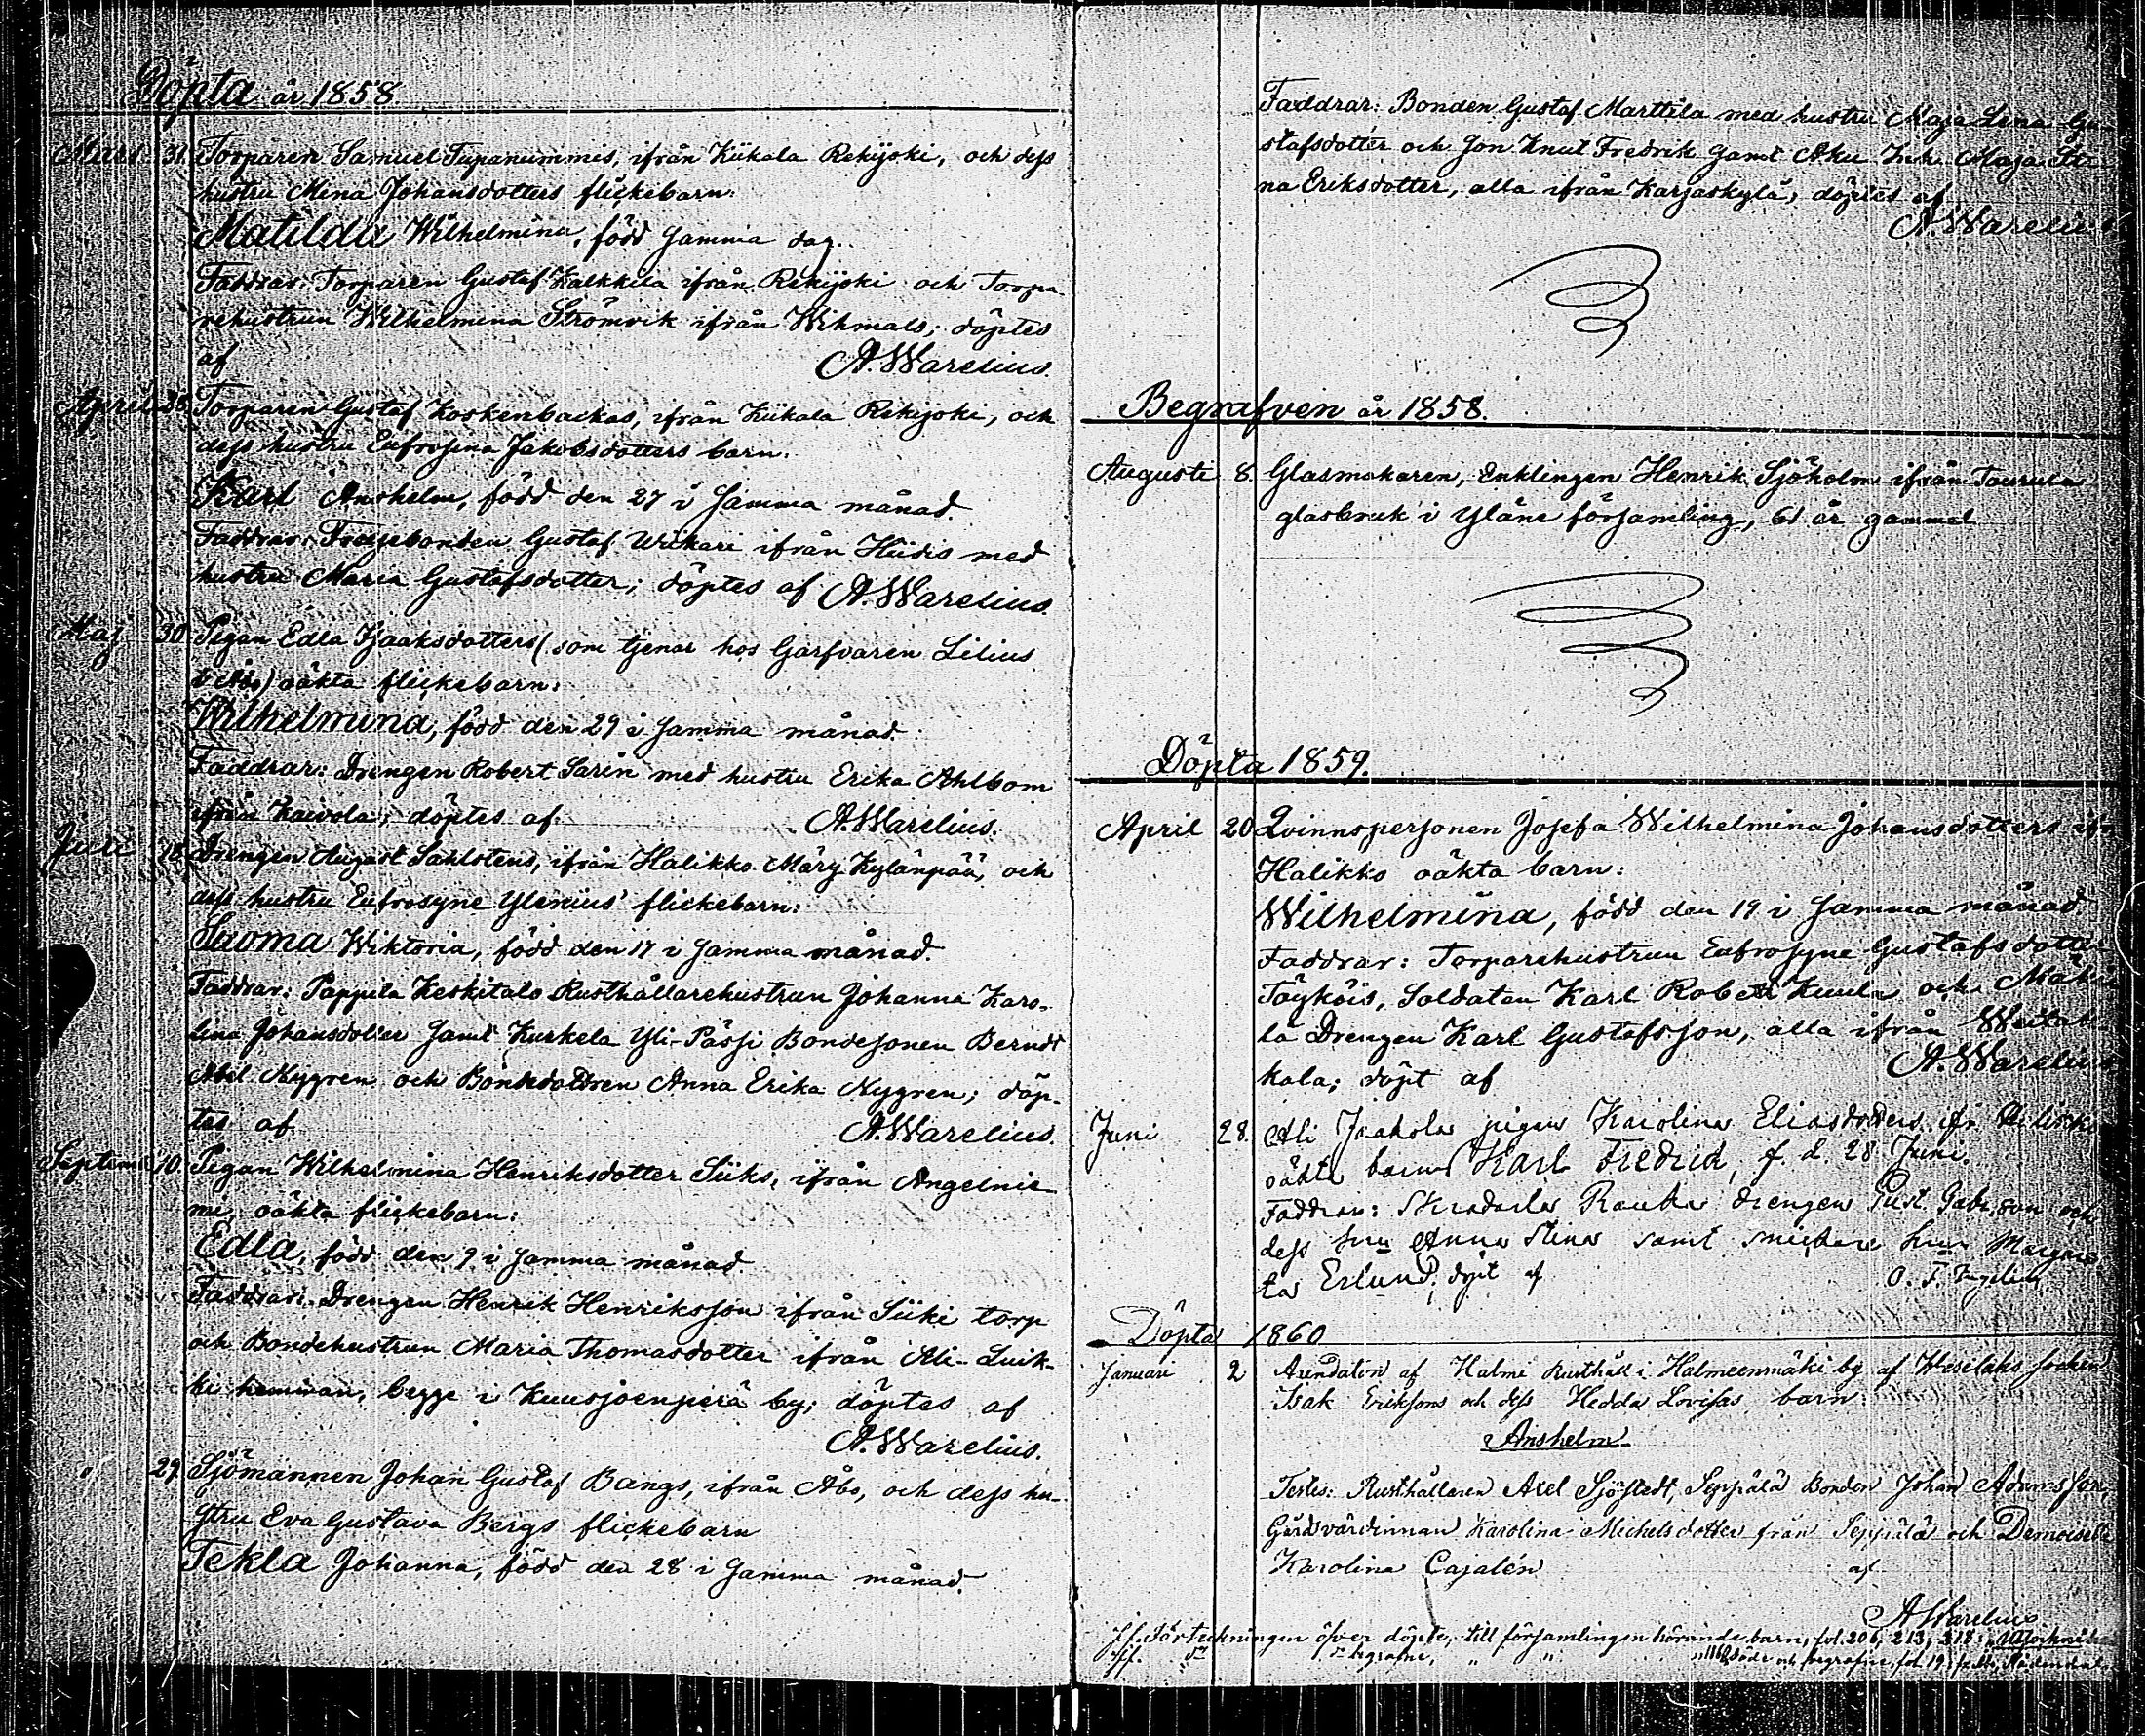 Döpta år 1858.
Mars 31. Torparen Samuel Tupanummis, ifrån Kiikala Rekijoki, och dess
hustru Mina Johansdotters flickebarn:
Matilda Wilhelmina, född samma dag.
Faddrar: Torparen Gustaf Kalkkila ifrån Rekijoki och Torpa-
rehustrun Wilhelmina Strömvik ifrån Wihmalo; döptes
af A. Warelius.
April 28. Torparen Gustaf Koskenbackas, ifrån Kiikala Rekijoki, och
dess hustru Eufrosina Jakobsdotters barn:
Karl Anshelm, född den 27 i samma månad.
Faddrar: Gustaf Uskari ifrån Hiidis med
hustru Maria Gustafsdotter; döptes af A. Warelius.
Maj 30. Pigan Edla Isaaksdotters (som tjenar hos Garfvaren Lilius
i Åbo) oäkta flickebarn:
Wilhelmina, född den 29 i samma månad.
Faddrar: Drengen Robert Sarin med hustru Erika Ahlbom
ifrån Kaivola; döptes af A. Warelius.
Juli 18. Drengen August Sahlstens, ifrån Halikko Märy Kylänpää, och
dess hustru Eufrosyne Ylenius' flickebarn:
Suoma Wiktoria, född den 17 i samma månad.
Faddrar: Pappila Keskitalo Rusthållarehustrun Johanna Karo-
lina Johansdotter samt Kurkela Yli-Pässi Bondesonen Berndt
Abel Nygren och Bondedottren Anna Erika Nygren; döp-
tes af A. Warelius.
Septemb. 10. Pigan Wilhelmina Henriksdotter Siiks, ifrån Angelnie-
mi, oäkta flickebarn:
Edla, född den 9 i samma månad.
Faddrar: Drengen Henrik Henriksson ifrån Siiki torp
och Bondehustrun Maria Thomasdotter ifrån Ali-Luik-
ki hemman, begge i Kuusjoenperä by; döptes af
A. Warelius.
" 29. Sjömannen Johan Gustaf Bangs, ifrån Åbo, och dess hu-
stru Eva Gustava Bergs flickebarn
Tekla Johanna, född den 28 i samma månad.
Faddrar: Bonden Gustaf Marttila med hustru Maja Lena Gu-
stafsdotter och Jon Knut Fredrik samt Aku Maja Sti-
na Eriksdotter, alla ifrån Karjaskylä; döptes af
A. Warelius
Begrafven år 1858.
Augusti 8. Glasmakaren, Enklingen Henrik Sjöholm ifrån Tourula
glasbruk i Yläne församling, 61 år gammal
Döpta 1859.
April 20 Qvinnspersonen Josefa Wilhelmina Johansdotters ifr
Halikko oäkta barn:
Wilhelmina, född den 19 i samma månad.
Faddrar: Torparehustrun Eufrosyne Gustafsdotter
Töyköis, Soldaten Karl Robert Kuula och Mäki-
lä Drengen Karl Gustafsson, alla ifrån
kala; döpt af A. Warelius
Juni 28. Ali Jaakola pigan Karolina Eliasdotters
oäkta barn Karl Fredrik, f. d. 28 Juni.
Faddrar: Rauka drengen Gust. Gabr.son och
dess hru Anna Stina samt hru Margare-
ta Erlund; döpt af O. F.
Döpta 1860
Januari 2 Arendatorn af Halmi Rusthåll i Halmeenmäki by af socken
Isak Eriksons och dess Hedda Lovisas barn
Anshelm
Testes: Rusthållaren Axel Sjöstedt, Seppälä Bonden Johan Adamsson,
Gårdsvärdinnan Karolina Michelsdotter från Seppälä och Demoiselle
Karolina Cajalén af
A Warelius
Jf. Förteckningen öfver döpte, till församlingen hörande barn, fol. 206, 213, 218;
Jf. do do begrafne, " "